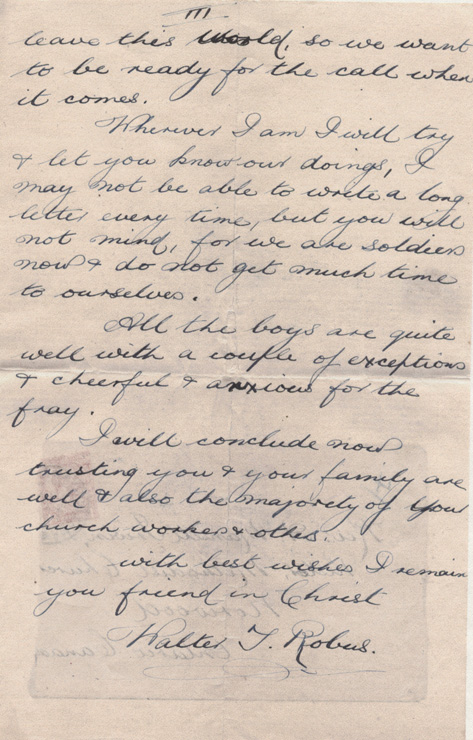 III
leave this World, so we want
to be ready for the call when
it comes.
Wherever I am I will try
& let you know our doings, I
may not be able to write a long
letter every time, but you will
not mind, for we are soldiers
now & do not get much time
to ourselves.
All the boys are quite
well with a couple of exceptions
& cheerful & anxious for the
fray.
I will conclude now
trusting you & your family are
well & also the majority of your
church workers & others.
with best wishes I remain
you friend in Christ
Walter T. Robus.